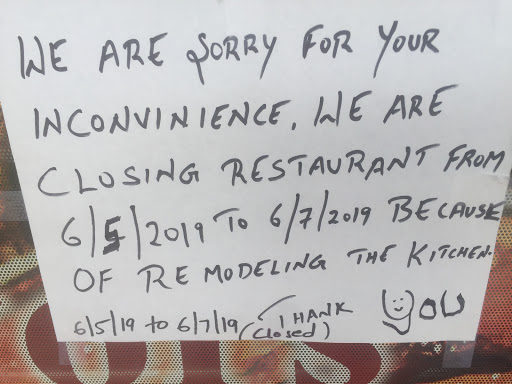 WE ARE SORRY FOR YOUR
INCONVINIENCE, WE ARE
CLOSING RESTAURANT FROM
6/5/2019 TO 6/7/2019 BECAUSE
OF REMODELING THE KITCHEN.
6/5/19 to 6/7/19 (closed) THANK YOU